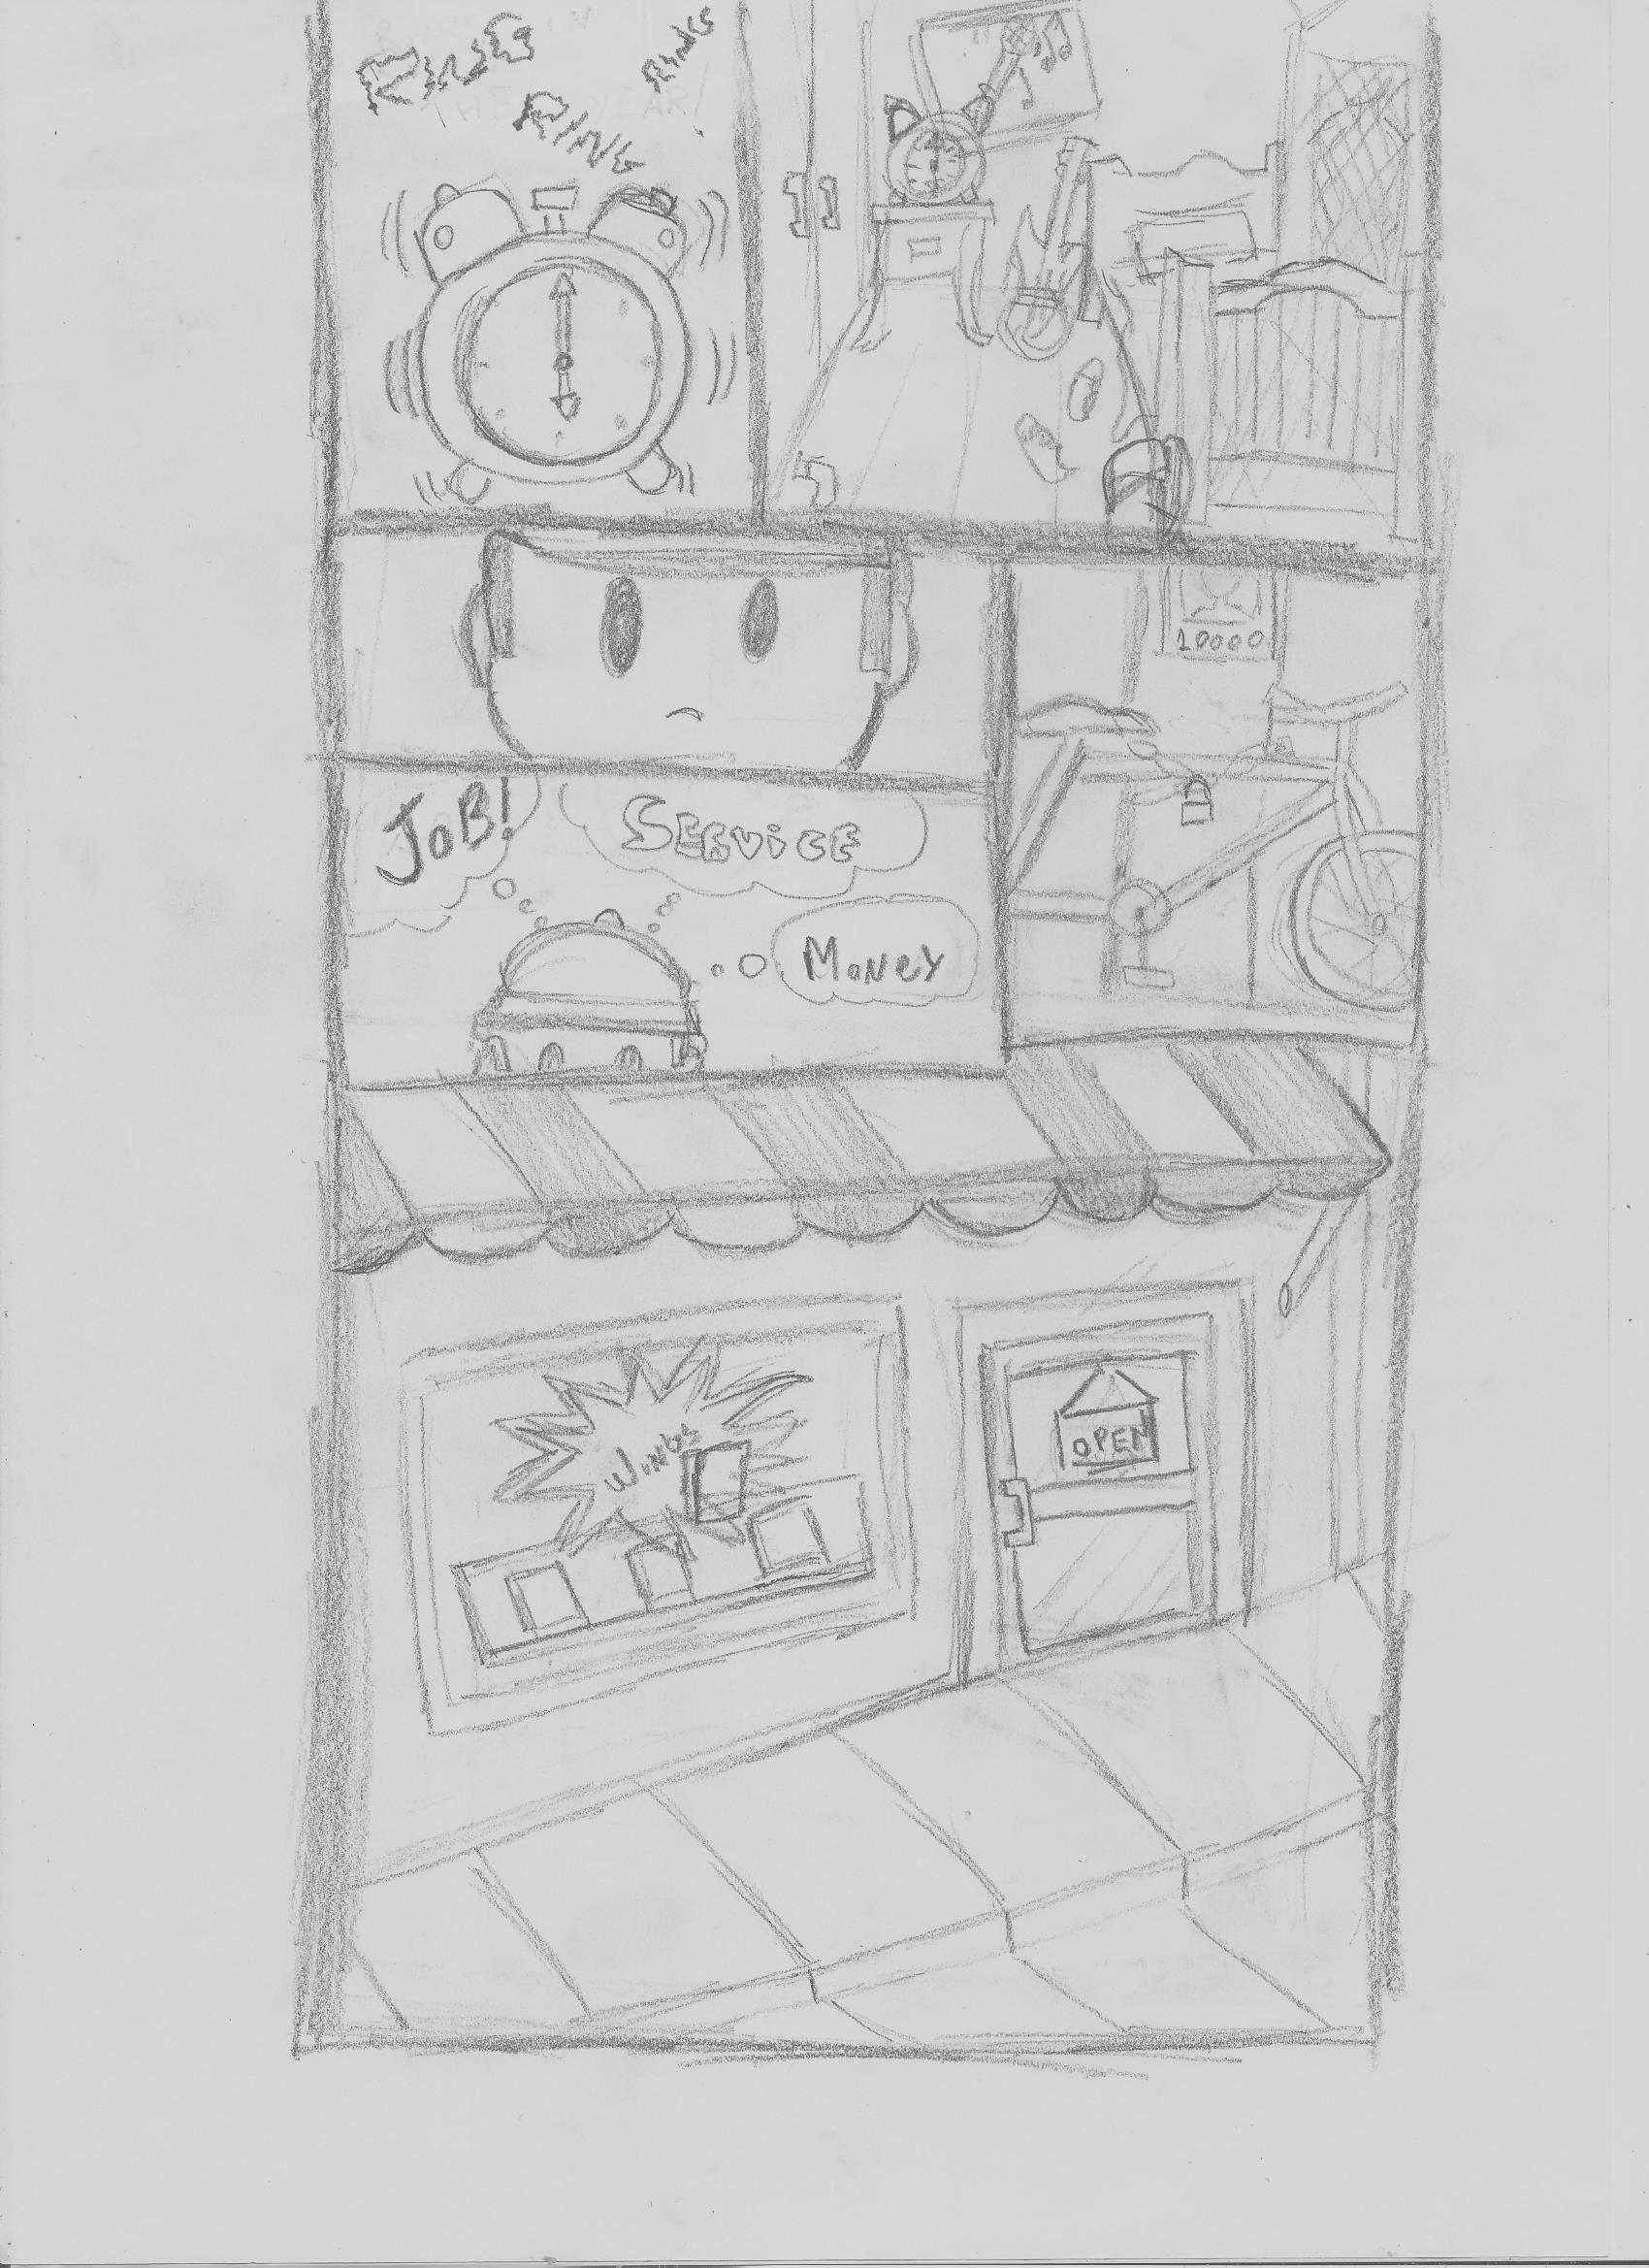 RING
RING
RING
10000
JOB!
SERVICE
MONEY
WINGS
OPEN